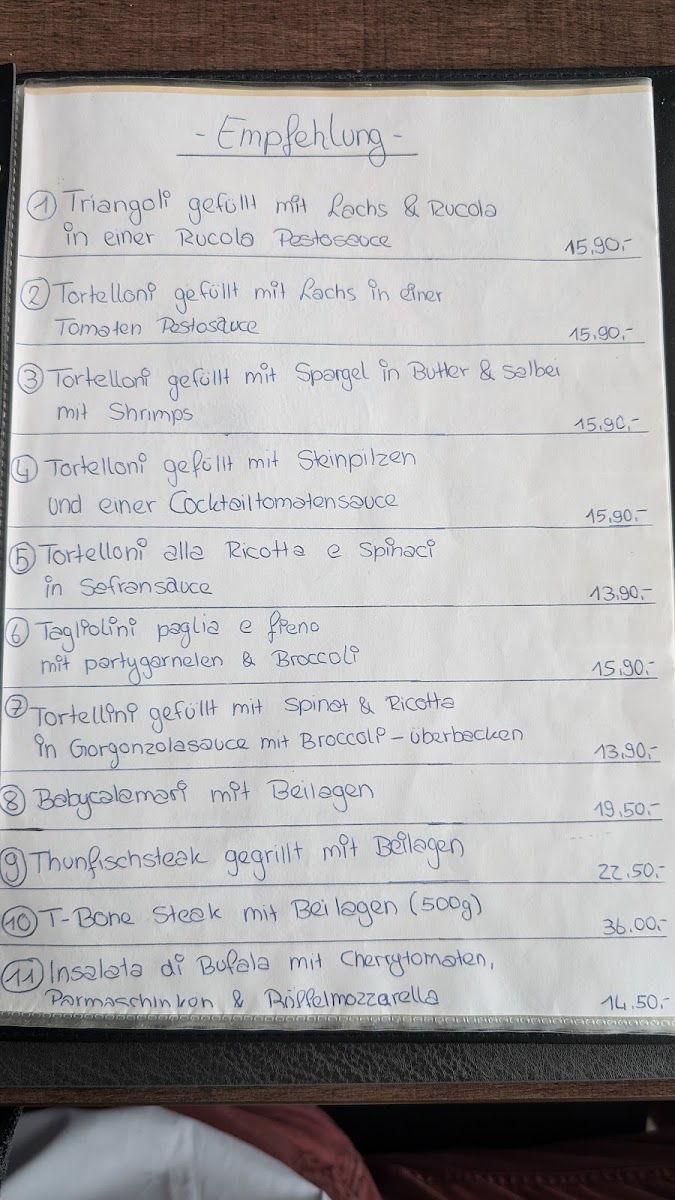 - Empfehlung -
① Triangoli gefüllt mit Lachs & Rucola
in einer Rucola Pestosauce 15,90,-
② Tortelloni gefüllt mit Lachs in einer
Tomaten Pestosauce 15,90,-
③ Tortelloni gefüllt mit Spargel in Butter & Salbei
mit Shrimps 15,90,-
④ Tortelloni gefüllt mit Steinpilzen
und einer Cocktailtomatensauce 15,90,-
⑤ Tortelloni alla Ricotta e Spinaci
in Safransauce 13,90,-
⑥ Tagliolini paglia e fieno
mit partygarnelen & Broccoli 15,90,-
⑦ Tortellini gefüllt mit Spinat & Ricotta
in Gorgonzolasauce mit Broccoli - überbacken 13,90,-
⑧ Babycalamari mit Beilagen 19,50,-
⑨ Thunfischsteak gegrillt mit Beilagen 22,50,-
⑩ T-Bone Steak mit Beilagen (500g) 36,00,-
⑪ Insalata di Bufala mit Cherrytomaten,
Parmaschinken & Büffelmozzarella 14,50,-